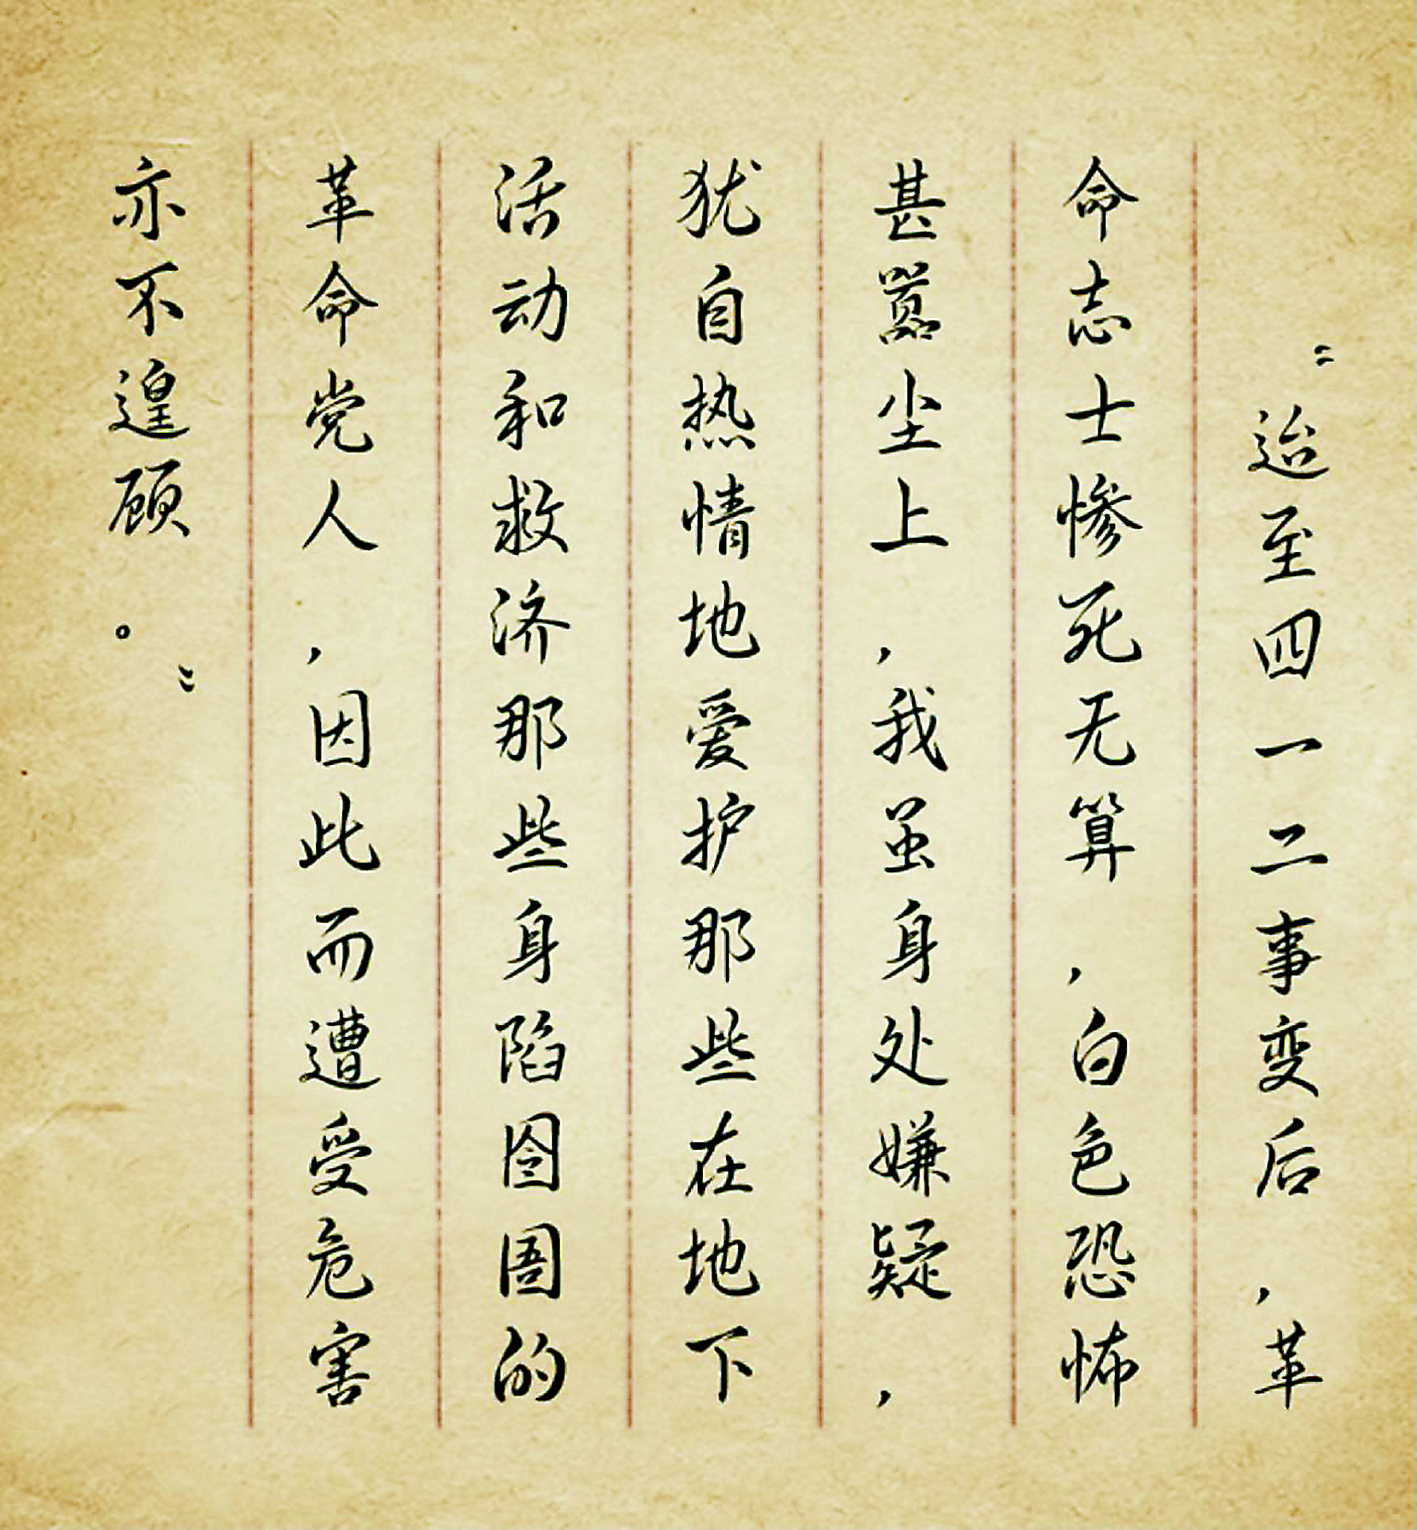 “迨至四一二事变后，革
命志士惨死无算，白色恐怖
甚嚣尘上，我虽身处嫌疑，
犹自热情地爱护那些在地下
活动和救济那些身陷囹圄的
革命党人，因此而遭受危害
亦不遑顾。”